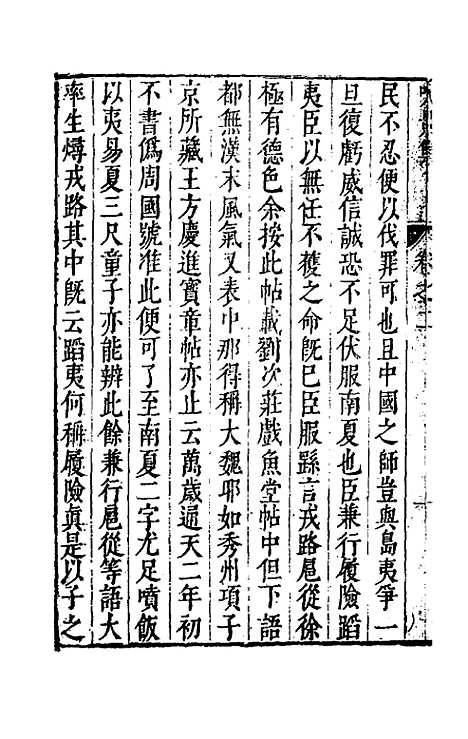 民不忍便以伐罪可也且中國之師豈與島夷爭一
旦復虧威信誠恐不足伏服南夏也臣兼行履險蹈
夷臣以無任不獲之命既已臣服繇言戎路扈從徐
極有德色余按此帖載劉次莊戲魚堂帖中但下語
都無漢末風氣又表中那得稱大魏耶如秀州項子
京所藏王方慶進寶章帖亦止云萬歲通天二年初
不書僞周國號准此便可了至南夏二字尤足噴飯
以夷易夏三尺童子亦能辨此餘兼行扈從等語大
率生燖戎路其中既云蹈夷何稱履險真是以子之